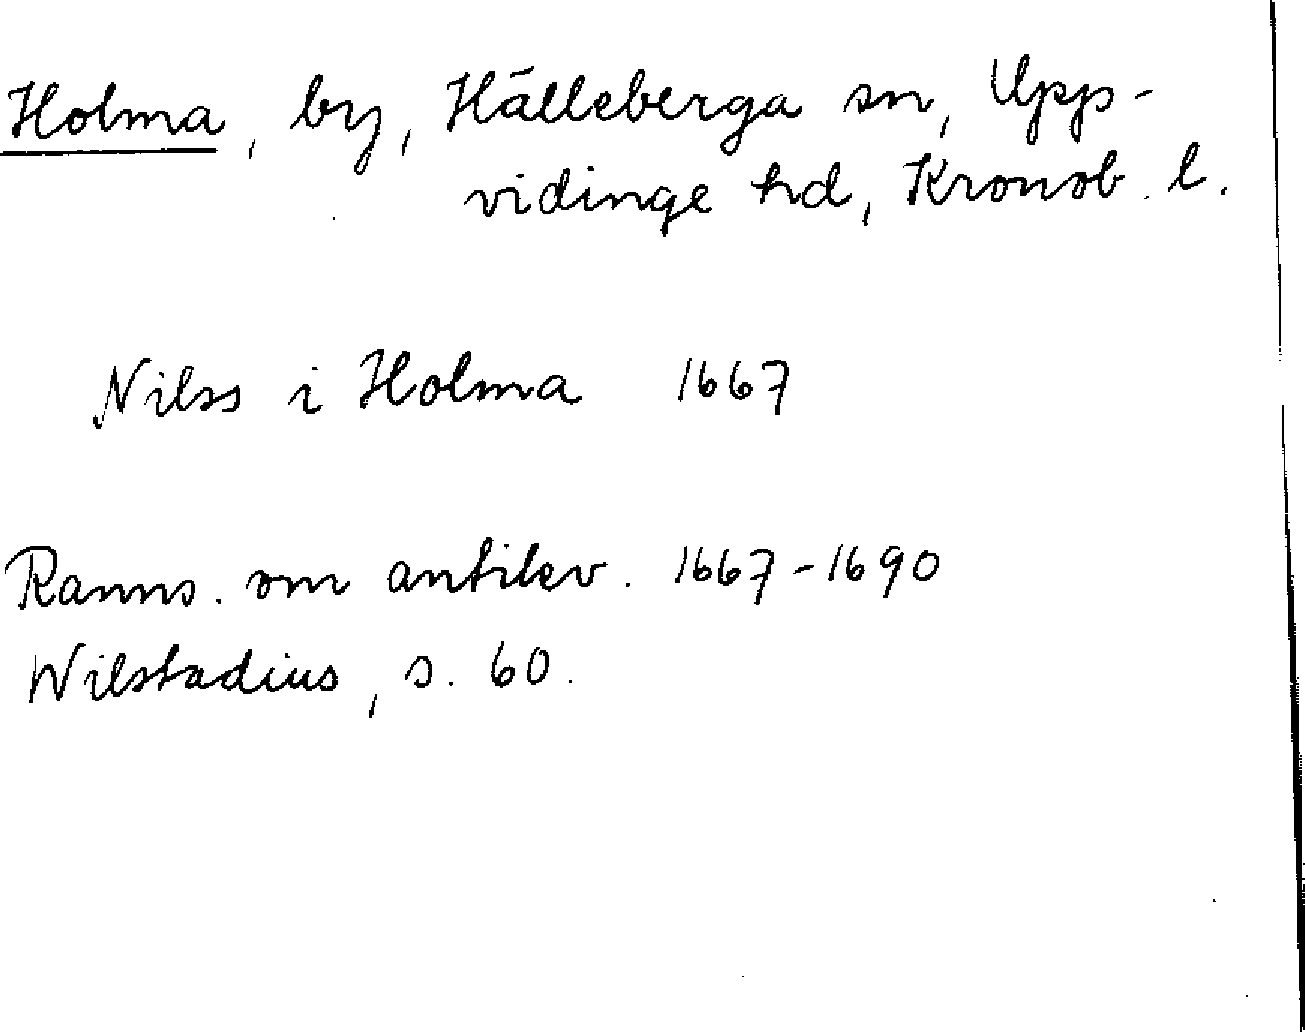 Holma, by, Hälleberga sn, Upp-
vidinge hd, Kronob. l.
Nilss i Holma 1667
Ranns. om antikv. 1667-1690
Wilstadius, s. 60.